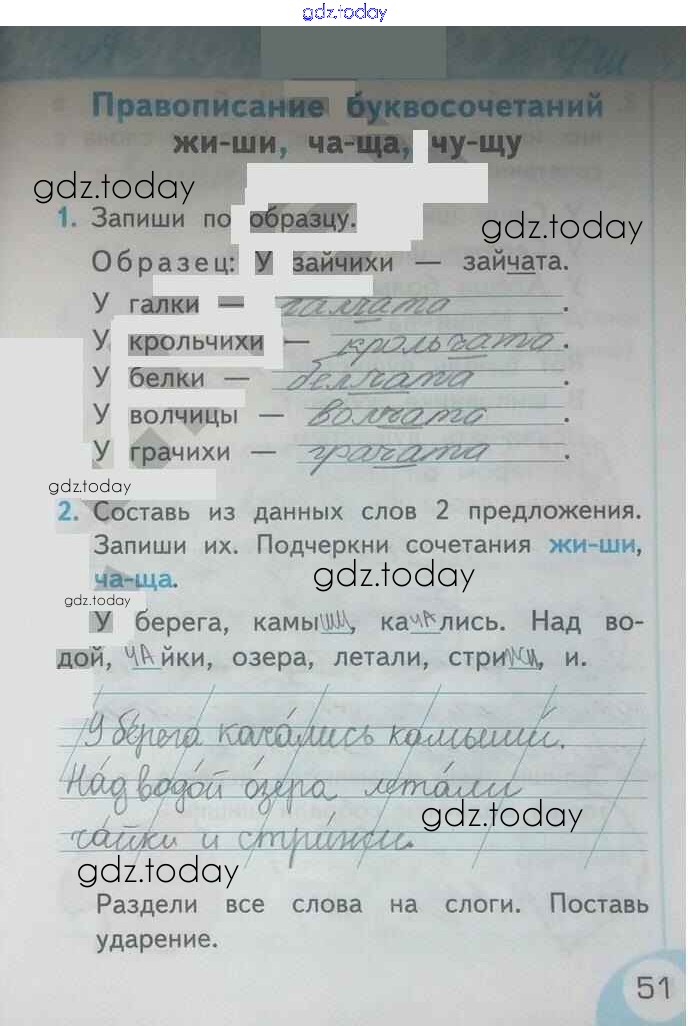 gdz.today
Правописание буквосочетаний
жи-ши, ча-ща, чу-щу
gdz.today
1. Запиши по образцу.
gdz.today
Образец: У зайчихи — зайчата.
У галки — галчата.
У крольчихи — крольчата.
У белки — белчата.
У волчицы — волчата.
У грачихи — грачата.
gdz.today
2. Составь из данных слов 2 предложения.
Запиши их. Подчеркни сочетания жи-ши,
ча-ща.
gdz.today
gdz.today
У берега, камыши, качались. Над во-
дой, чайки, озера, летали, стрижи, и.
У берега качались камыши.
Над водой озера летали
gdz.today
чайки и стрижи.
gdz.today
Раздели все слова на слоги. Поставь
ударение.
51